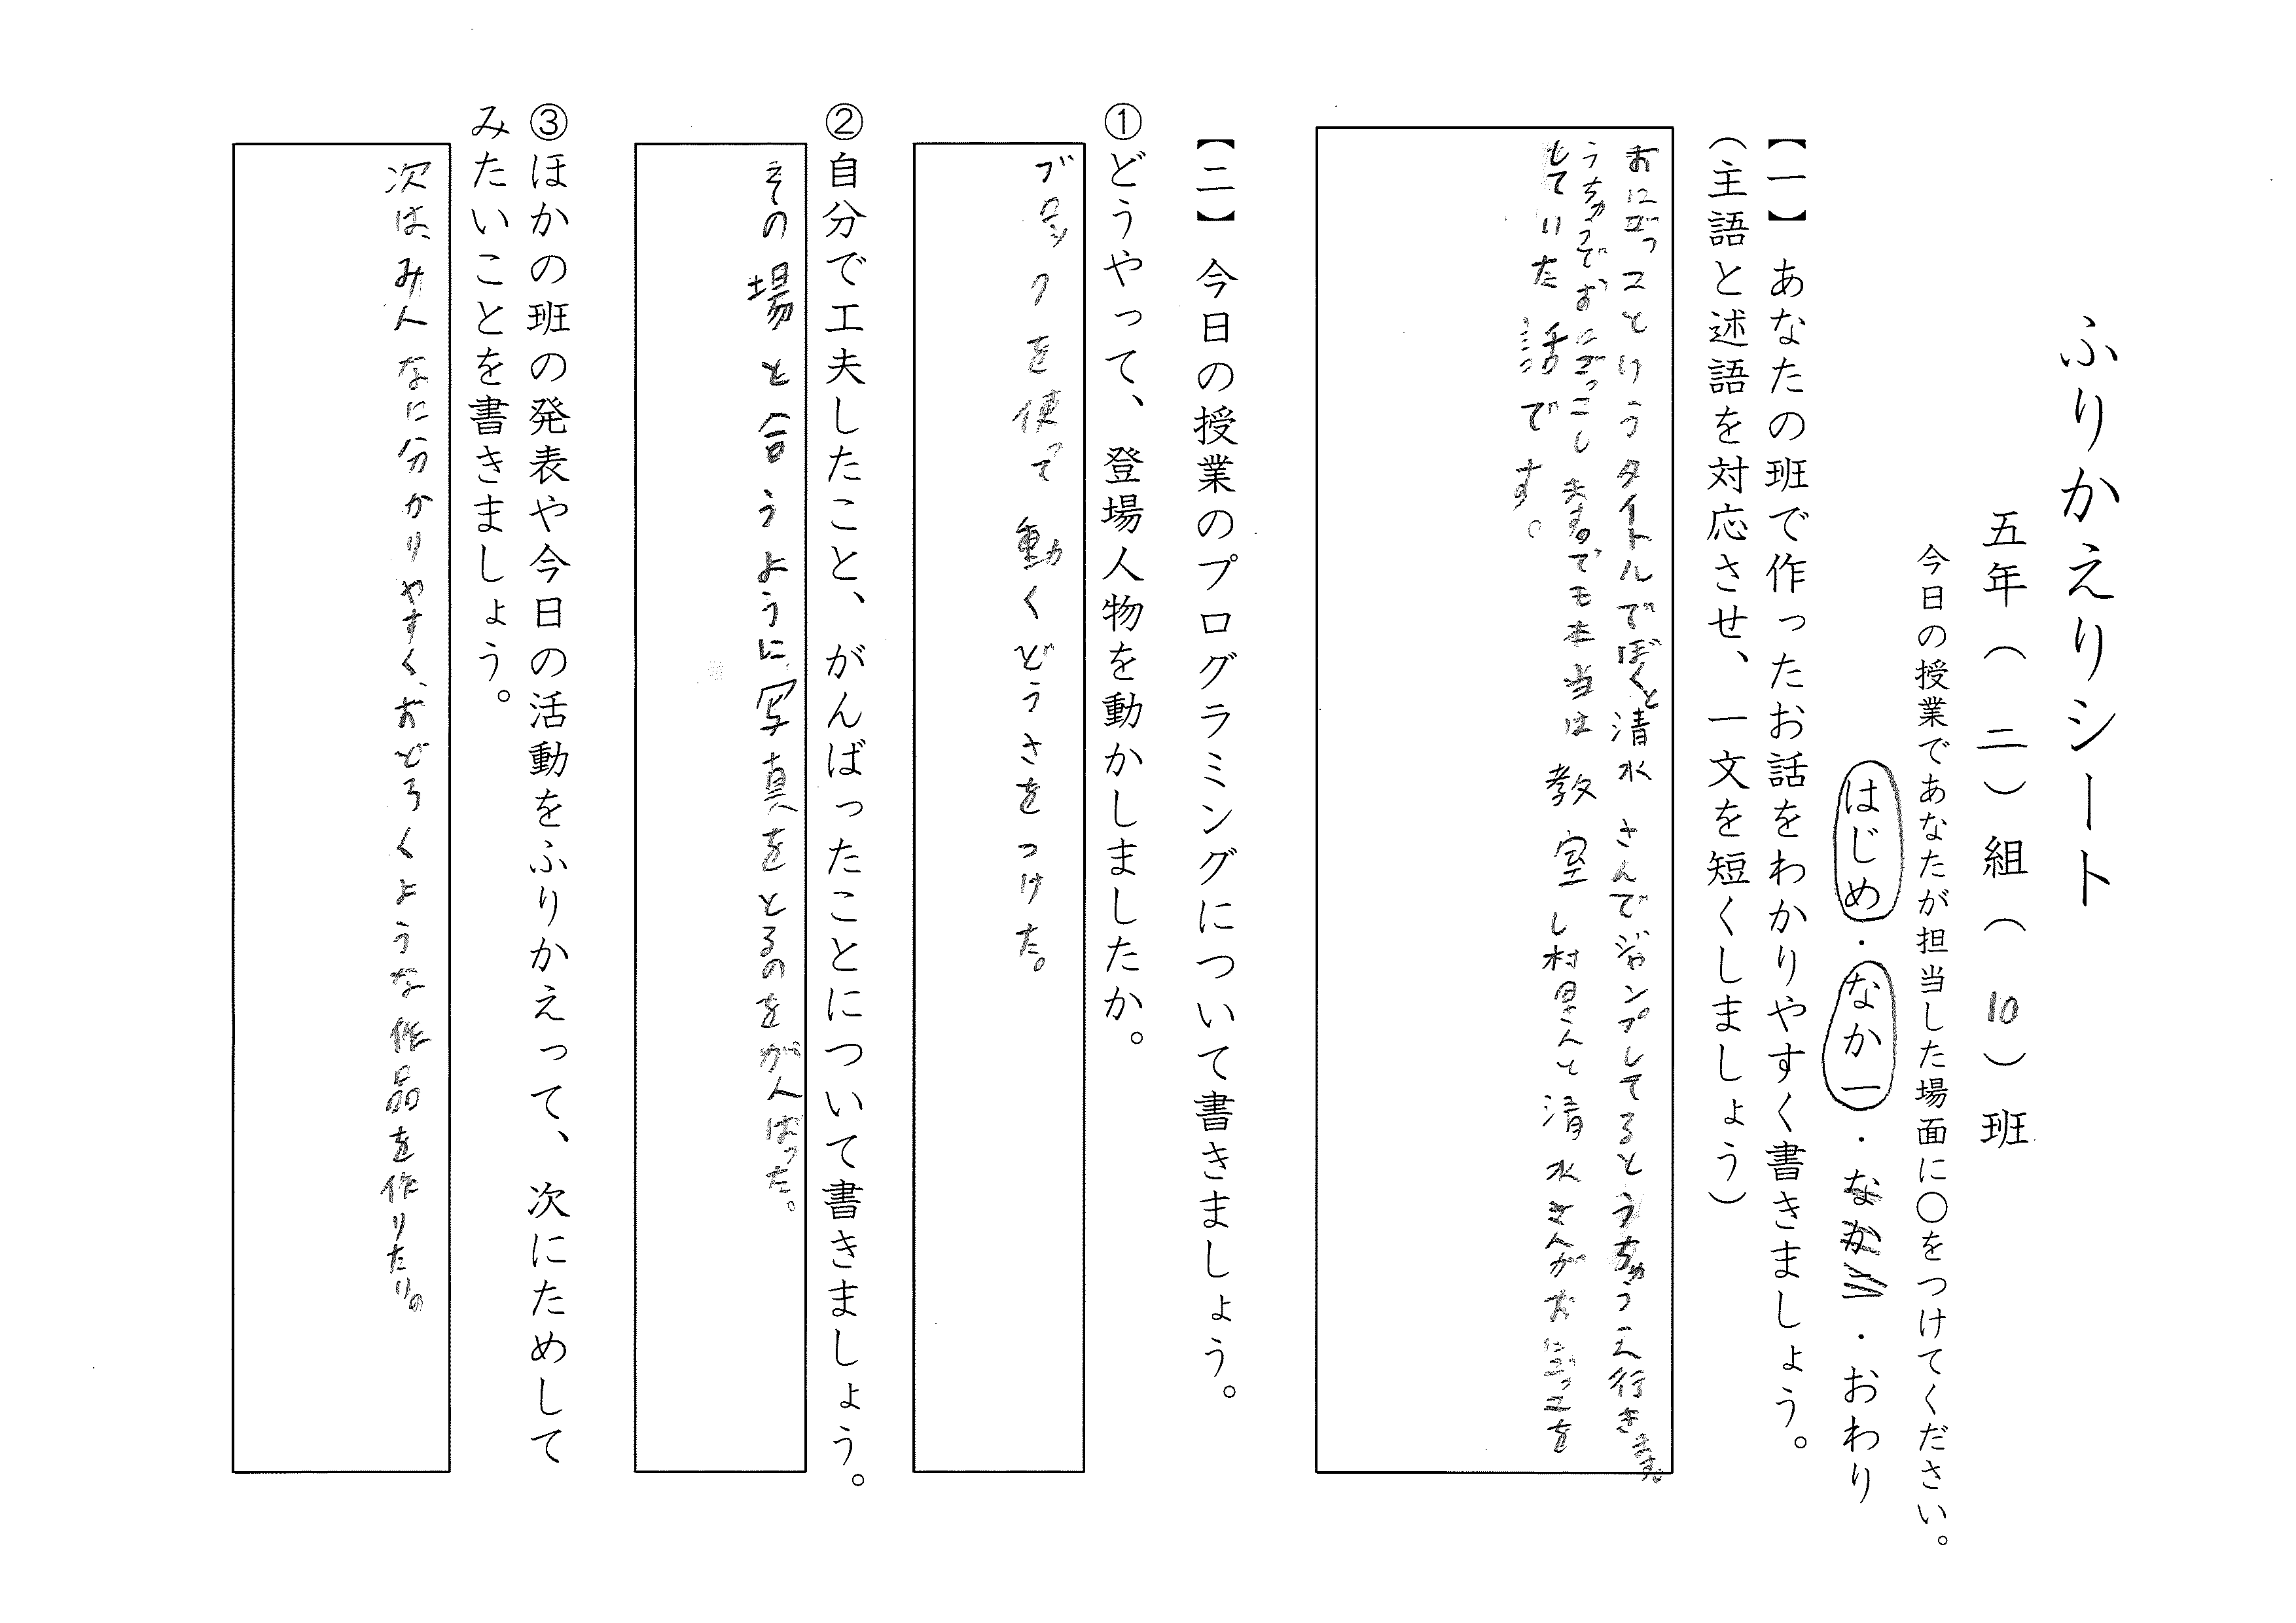 ふりかえりシート
五年（二）組（10）班
今日の授業であなたが担当した場面に○をつけてください。
はじめ・なか一・なか二・おわり
【一】あなたの班で作ったお話をわかりやすく書きましょう。
（主語と述語を対応させ、一文を短くしましょう）
おにごっこというタイトルでぼくと清水さんでジャンプしてるとうちゅうへ行きます。
うちゅうでおにごっこします。でも本当は教室し村里さんと清水さんがおにごっこを
していた話です。
【二】今日の授業のプログラミングについて書きましょう。
①どうやって、登場人物を動かしましたか。
ブロックを使って動くどうさをつけた。
②自分で工夫したこと、がんばったことについて書きましょう。
その場と合うように、写真をとるのをがんばった。
③ほかの班の発表や今日の活動をふりかえって、次にためして
みたいことを書きましょう。
次は、みんなに分かりやすく、おどろくような作品を作りたい。